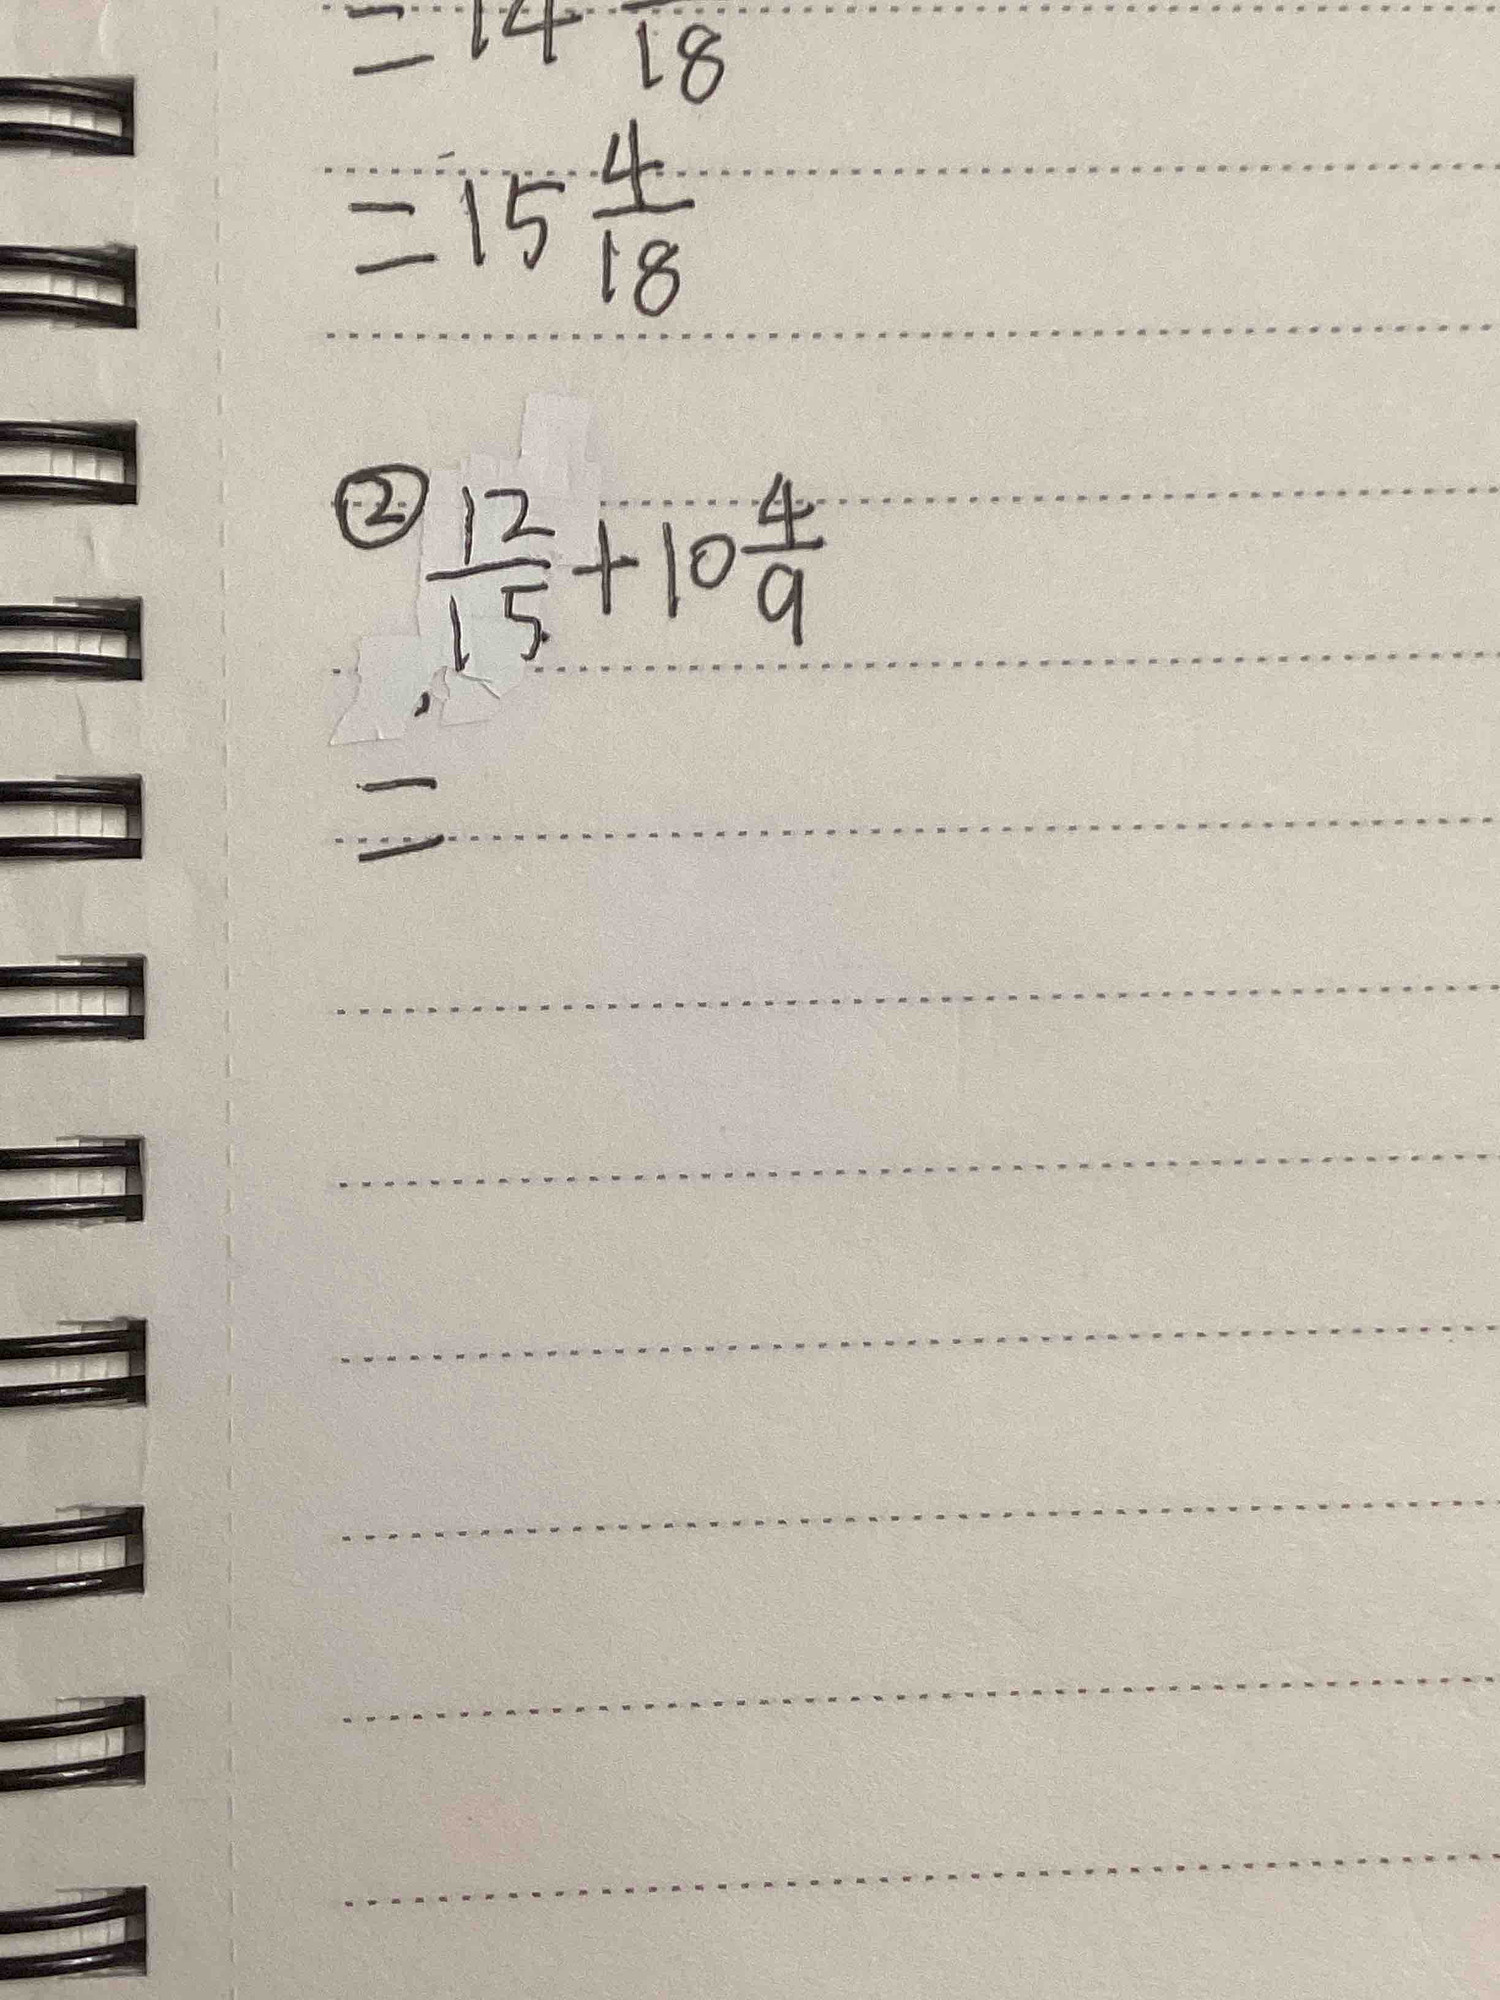 = 14 /18
= 15 4/18
② 12/15 + 10 4/9
=